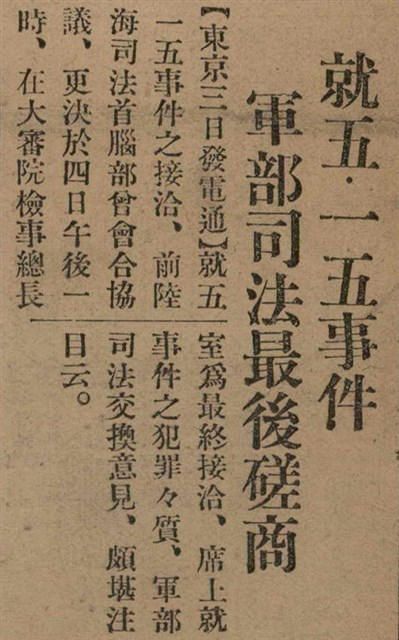 就五·一五事件
軍部司法最後磋商
【東京三日發電通】就五
一五事件之接洽、前陸
海司法首腦部曾會合協
議、更決於四日午後一
時、在大審院檢事總長
室爲最終接洽、席上就
事件之犯罪々質、軍部
司法交換意見、頗堪注
目云。